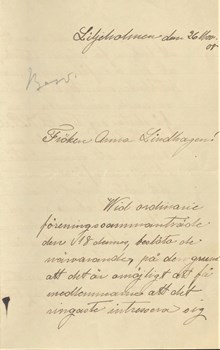 Liljeholmen den 26 Nov. 08
Besv.
Fröken Anna Lindhagen!
Wid ordinarie
föreningssammanträde
den 18 dennes beslöto de
närvarande, på den grund
att det är omöjligt att få
medlemmarna att det
ringaste intressera sig